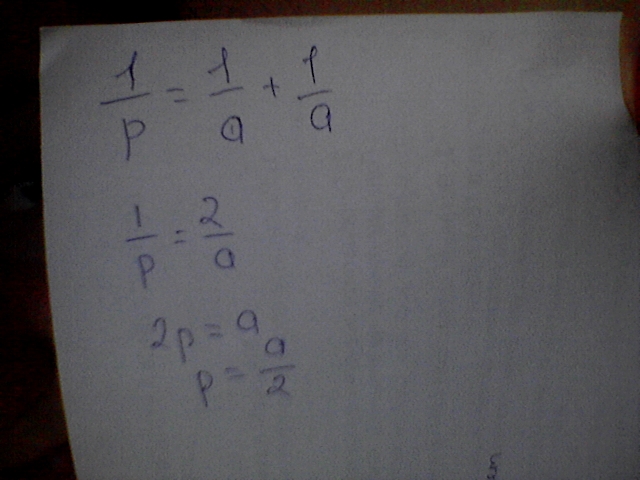 1/p = 1/a + 1/a
1/p = 2/a
2p = a
p = a/2